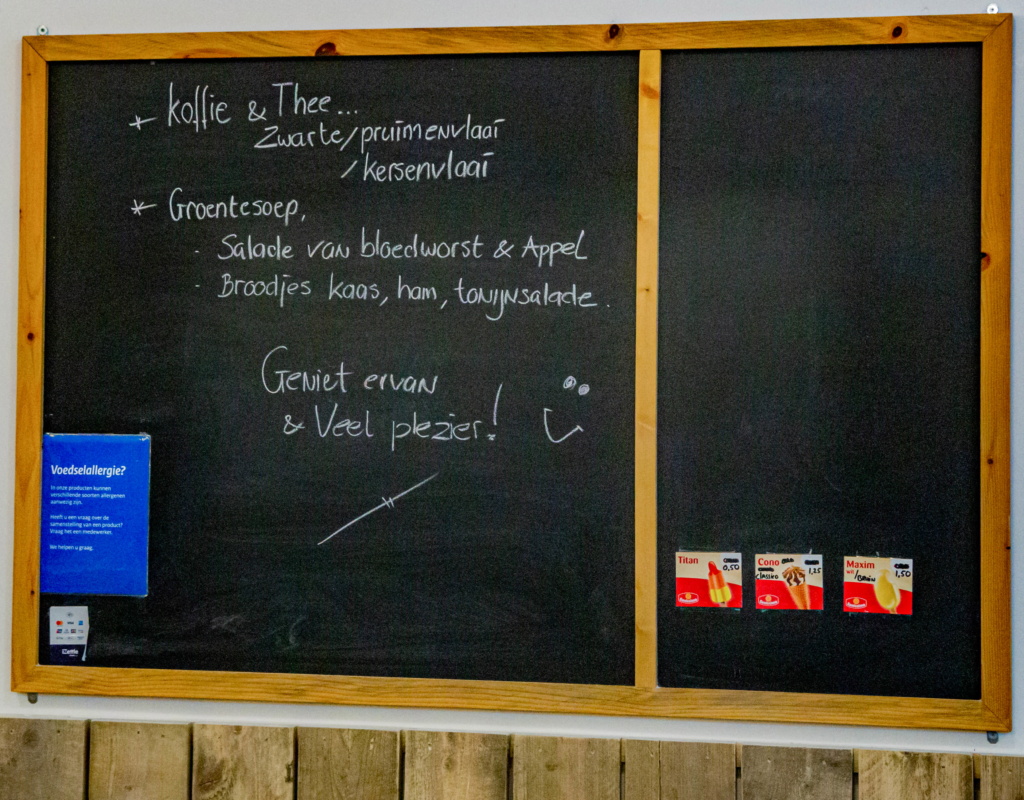 * koffie & Thee...
Zwarte/pruimenvlaai
/kersenvlaai
* Groentesoep,
- Salade van bloedworst & Appel
- Broodjes kaas, ham, tonijnsalade.
Geniet ervan
& Veel plezier!
Voedselallergie?
In onze producten kunnen
verschillende soorten allergenen
aanwezig zijn.
Heeft u een vraag over de
samenstelling van een product?
Vraag het een medewerker.
We helpen u graag.
Titan
0,50
Cono
classico
1,25
Maxim
wit/BRUIN
1,50